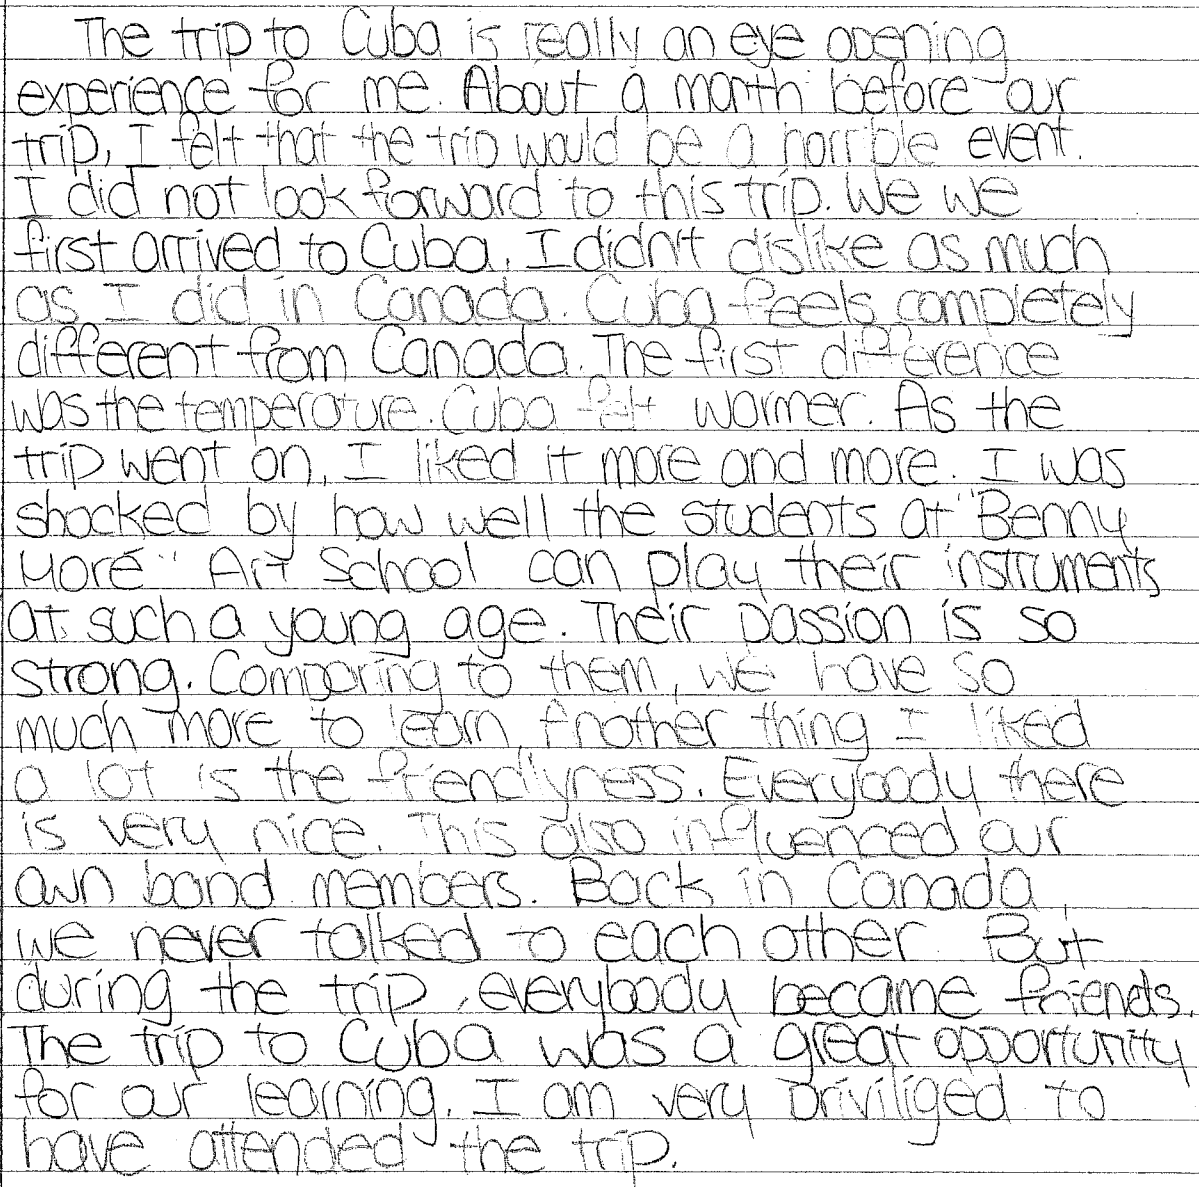 The trip to Cuba is really an eye opening
experience for me. About a month before our
trip, I felt that the trip would be a horrible event.
I did not look forward to this trip. We we
first arrived to Cuba, I didn't dislike as much
as I did in Canada. Cuba feels completely
different from Canada. The first difference
was the temperature. Cuba felt warmer. As the
trip went on, I liked it more and more. I was
shocked by how well the students at "Benny
Moré" Art School can play their instruments
at such a young age. Their passion is so
strong. Comparing to them, we have so
much more to learn Another thing I liked
a lot is the friendlyness. Everybody there
is very nice. This also influenced our
own band members. Back in Canada,
we never talked to each other. But
during the trip, everybody became friends.
The trip to Cuba was a great opportunity
for our learning. I am very priviliged to
have attended the trip.